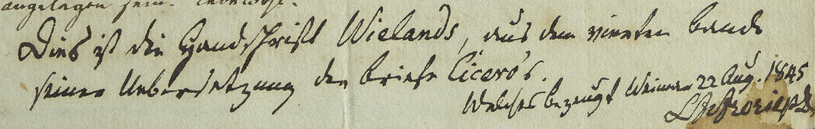 angelegen sein.
Dies ist die Handschrift Wielands, aus dem vierten Bande
seiner Uebersetzung der Briefe Cicero's.
Welches bezeugt Weimar 22 Aug. 1845